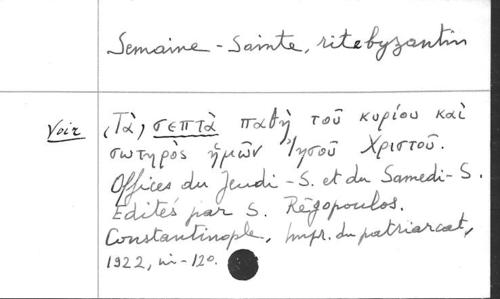 Semaine-Sainte, rite byzantin
Voir (Τὰ) σεπτὰ παθὴ τοῦ κυρίου καὶ
σωτηρὸς ἡμῶν Ἰησοῦ Χριστοῦ.
Offices du Jeudi-S. et du Samedi-S.
Edités par S. Rēgopoulos.
Constantinople, Impr. du patriarcat,
1922, in-12o.